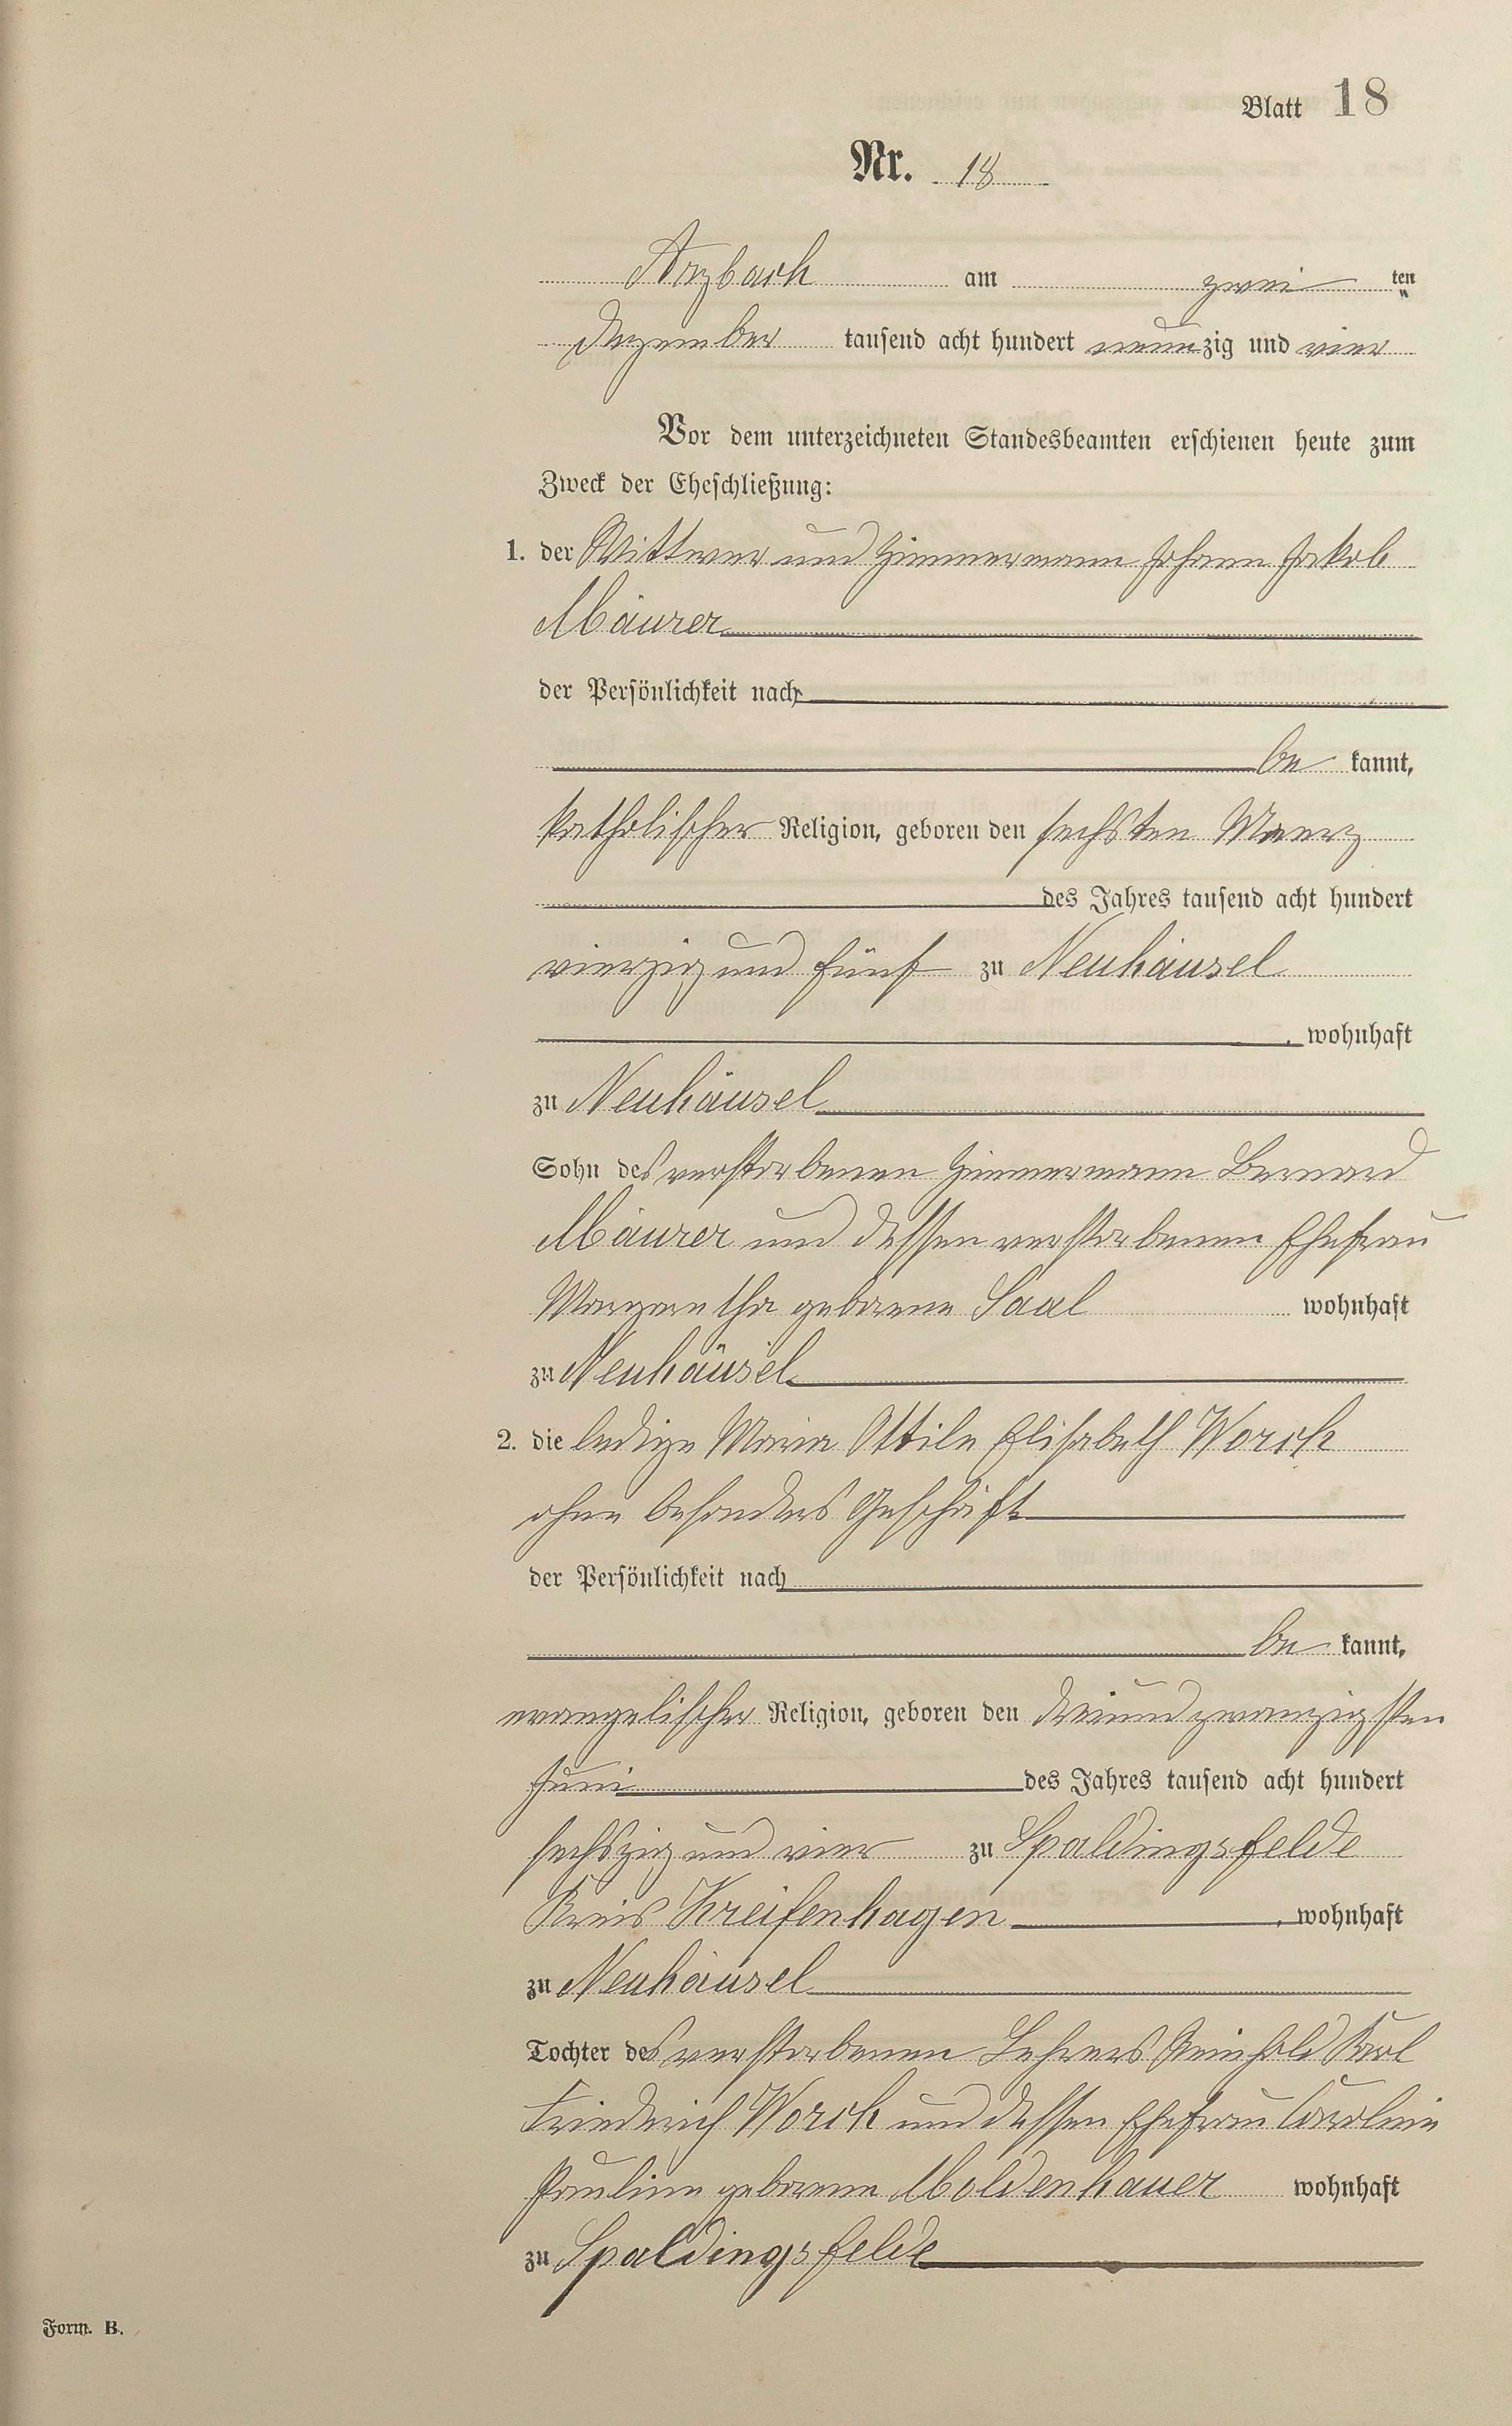 Blatt 18
Nr. 18
Arzbach am zwei ten
Dezember tausend acht hundert neunzig und vier
Vor dem unterzeichneten Standesbeamten erschienen heute zum
Zweck der Eheschließung:
1. der Wittwer und Zimmermann Johann Jakob
Mäurer
der Persönlichkeit nach
be kannt,
katholischer Religion, geboren den sechsten Maerz
des Jahres tausend acht hundert
vierzig und fünf zu Neuhäusel
, wohnhaft
zu Neuhäusel
Sohn des verstorbenen Zimmermann Bernard
Mäurer und dessen verstorbenen Ehefrau
Margaretha geborene Saal wohnhaft
zu Neuhäusel
2. die ledige Maria Ottile Elisabeth Worch
ohne besonders Geschäft
der Persönlichkeit nach
be kannt,
evangelischer Religion, geboren den dreiundzwanzigsten
Juni des Jahres tausend acht hundert
sechszig und vier zu Spaldingsfelde
Kreis Kreifenhagen , wohnhaft
zu Neuhäusel
Tochter des verstorbenen Lehrers Reinhold Karl
Friedrich Worch und dessen Ehefrau Carolina
Pauline geborene Moldenhauer wohnhaft
zu Spaldingsfelde
Form. B.